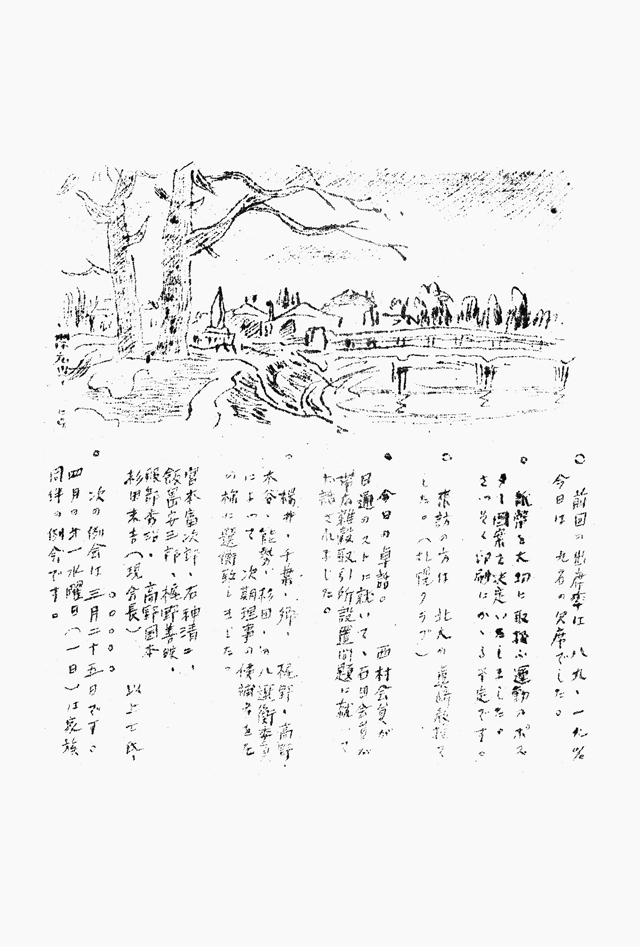 ○ 前回の出席率は 八九・一九%
今日は 九名の欠席でした。
○ 紙幣を大切に取扱ふ運動のポス
ター図案を決定いたしました。
さっそく印刷にかゝる予定です。
○ 来訪の方は 北大の 教授で
した。（札幌クラブ）
○ 今日の卓話。 西村会員が
日通のストに就いて、石田会員が
帯広雑穀取引所設置問題に就いて
お話されました。
○ 櫻井・千葉・郷・ 梶野・高野・
木谷・能勢・杉田・の八選衡委員
によって 次期理事の候補者を左
の様に選衡致しました。
宮本富次郎・石神清二・
飯島安三郎・梶野善
服部 ・高野国本
杉田末吉（現会長） 以上七氏・
○○○○○
○ 次の例会は三月二十五日です。
四月の才一水曜日（一日）は家族
同伴の例会です。